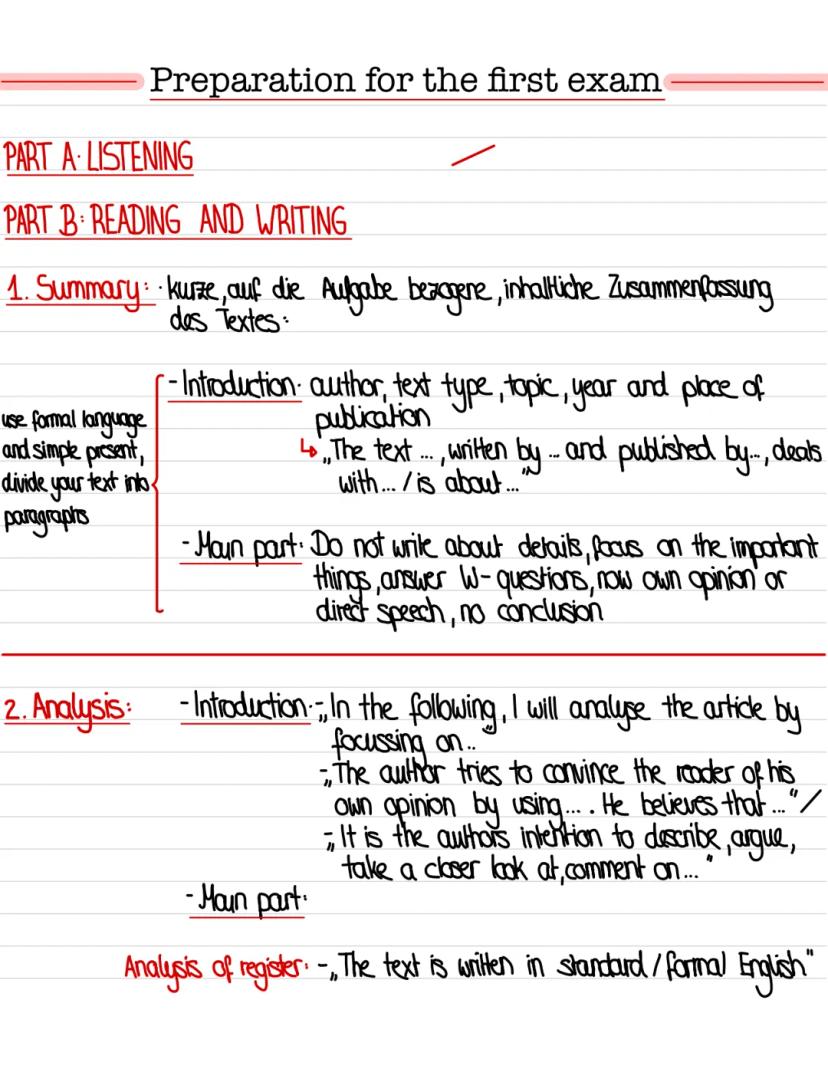 Preparation for the first exam
PART A: LISTENING
PART B: READING AND WRITING
1. Summary: · kurze, auf die Aufgabe bezogene, inhaltliche Zusammenfassung
des Textes:
- Introduction: author, text type, topic, year and place of
publication
↳ „The text ..., written by ... and published by..., deals
with... / is about..."
use formal language
and simple present,
divide your text into
paragraphs
- Main part: Do not write about details, focus on the important
things, answer W-questions, now own opinion or
direct speech, no conclusion
2. Analysis: - Introduction: -„In the following, I will analyse the article by
focussing on.."
-„The author tries to convince the reader of his
own opinion by using... . He believes that ..." /
-„It is the authors intention to describe, argue,
take a closer look at, comment on..."
- Main part:
Analysis of register: -„The text is written in standard / formal English"